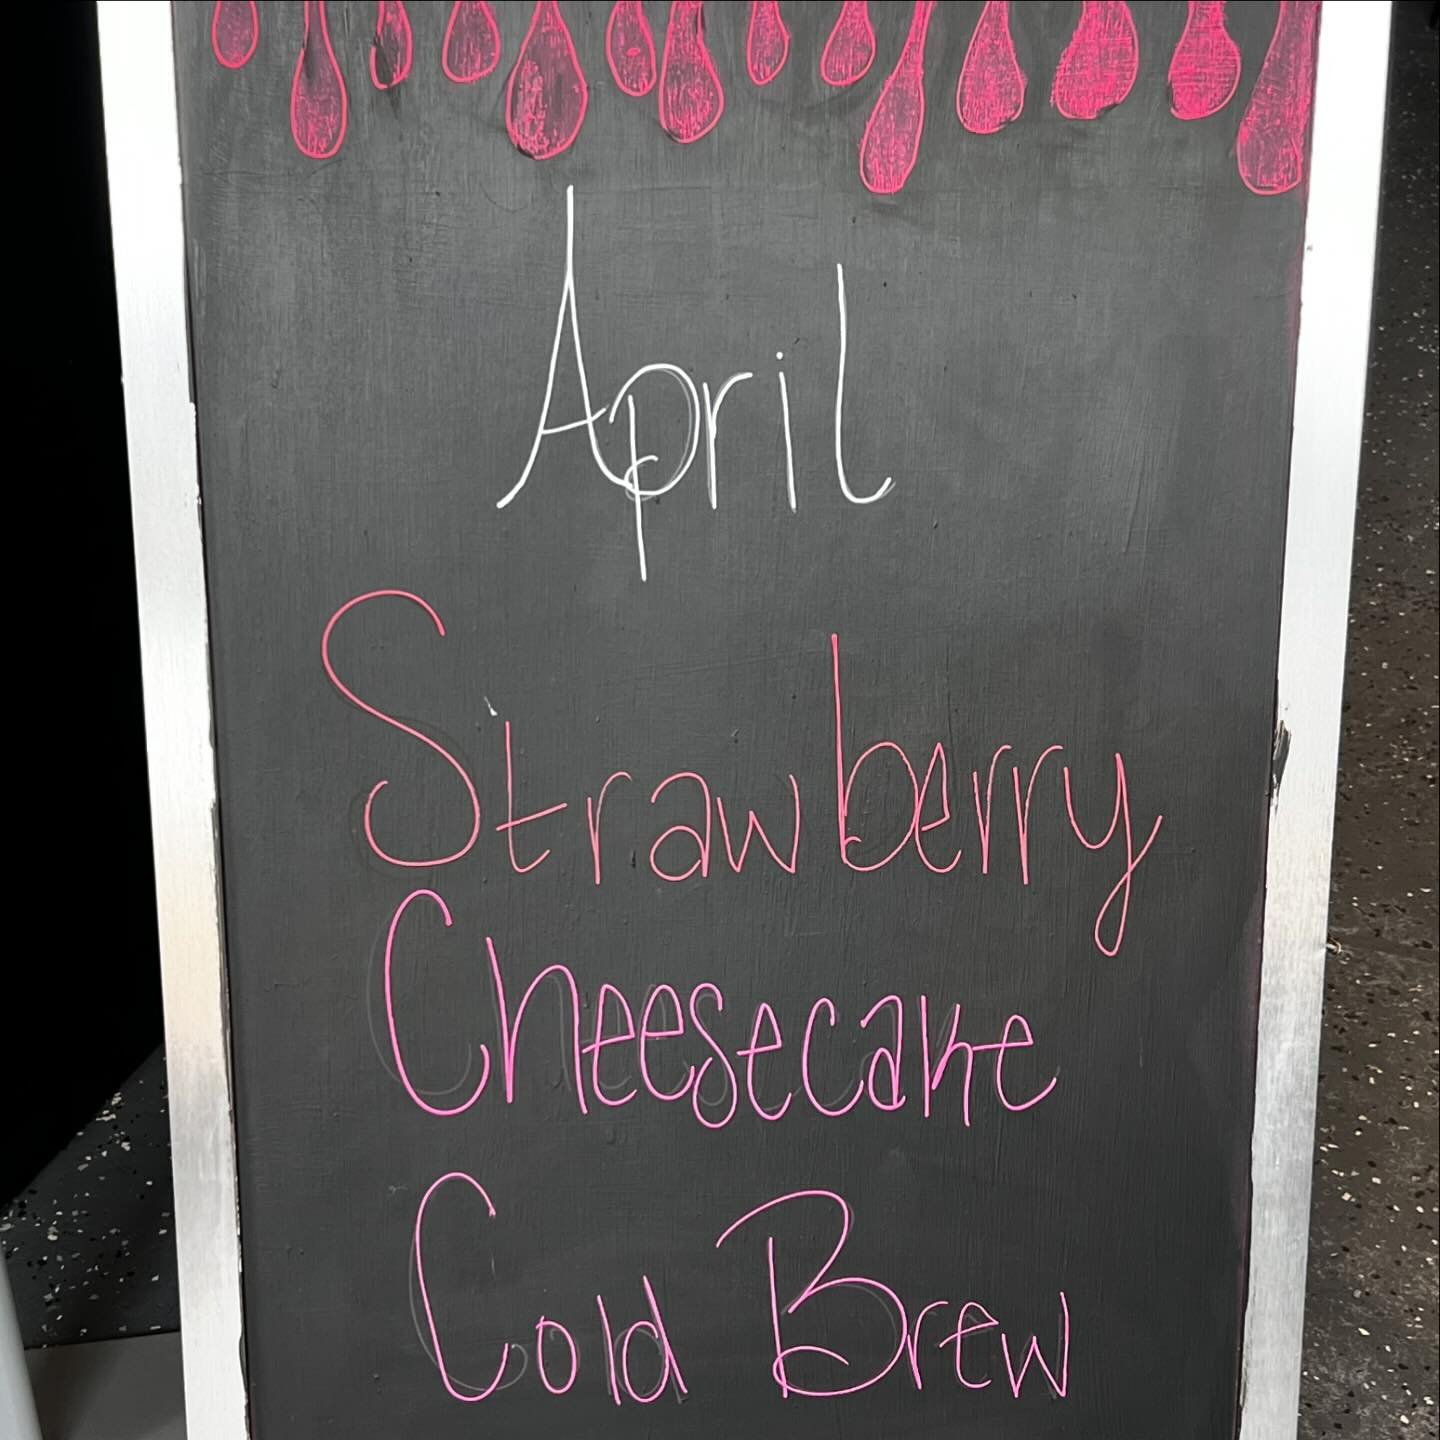 April
Strawberry
Cheesecake
Cold Brew